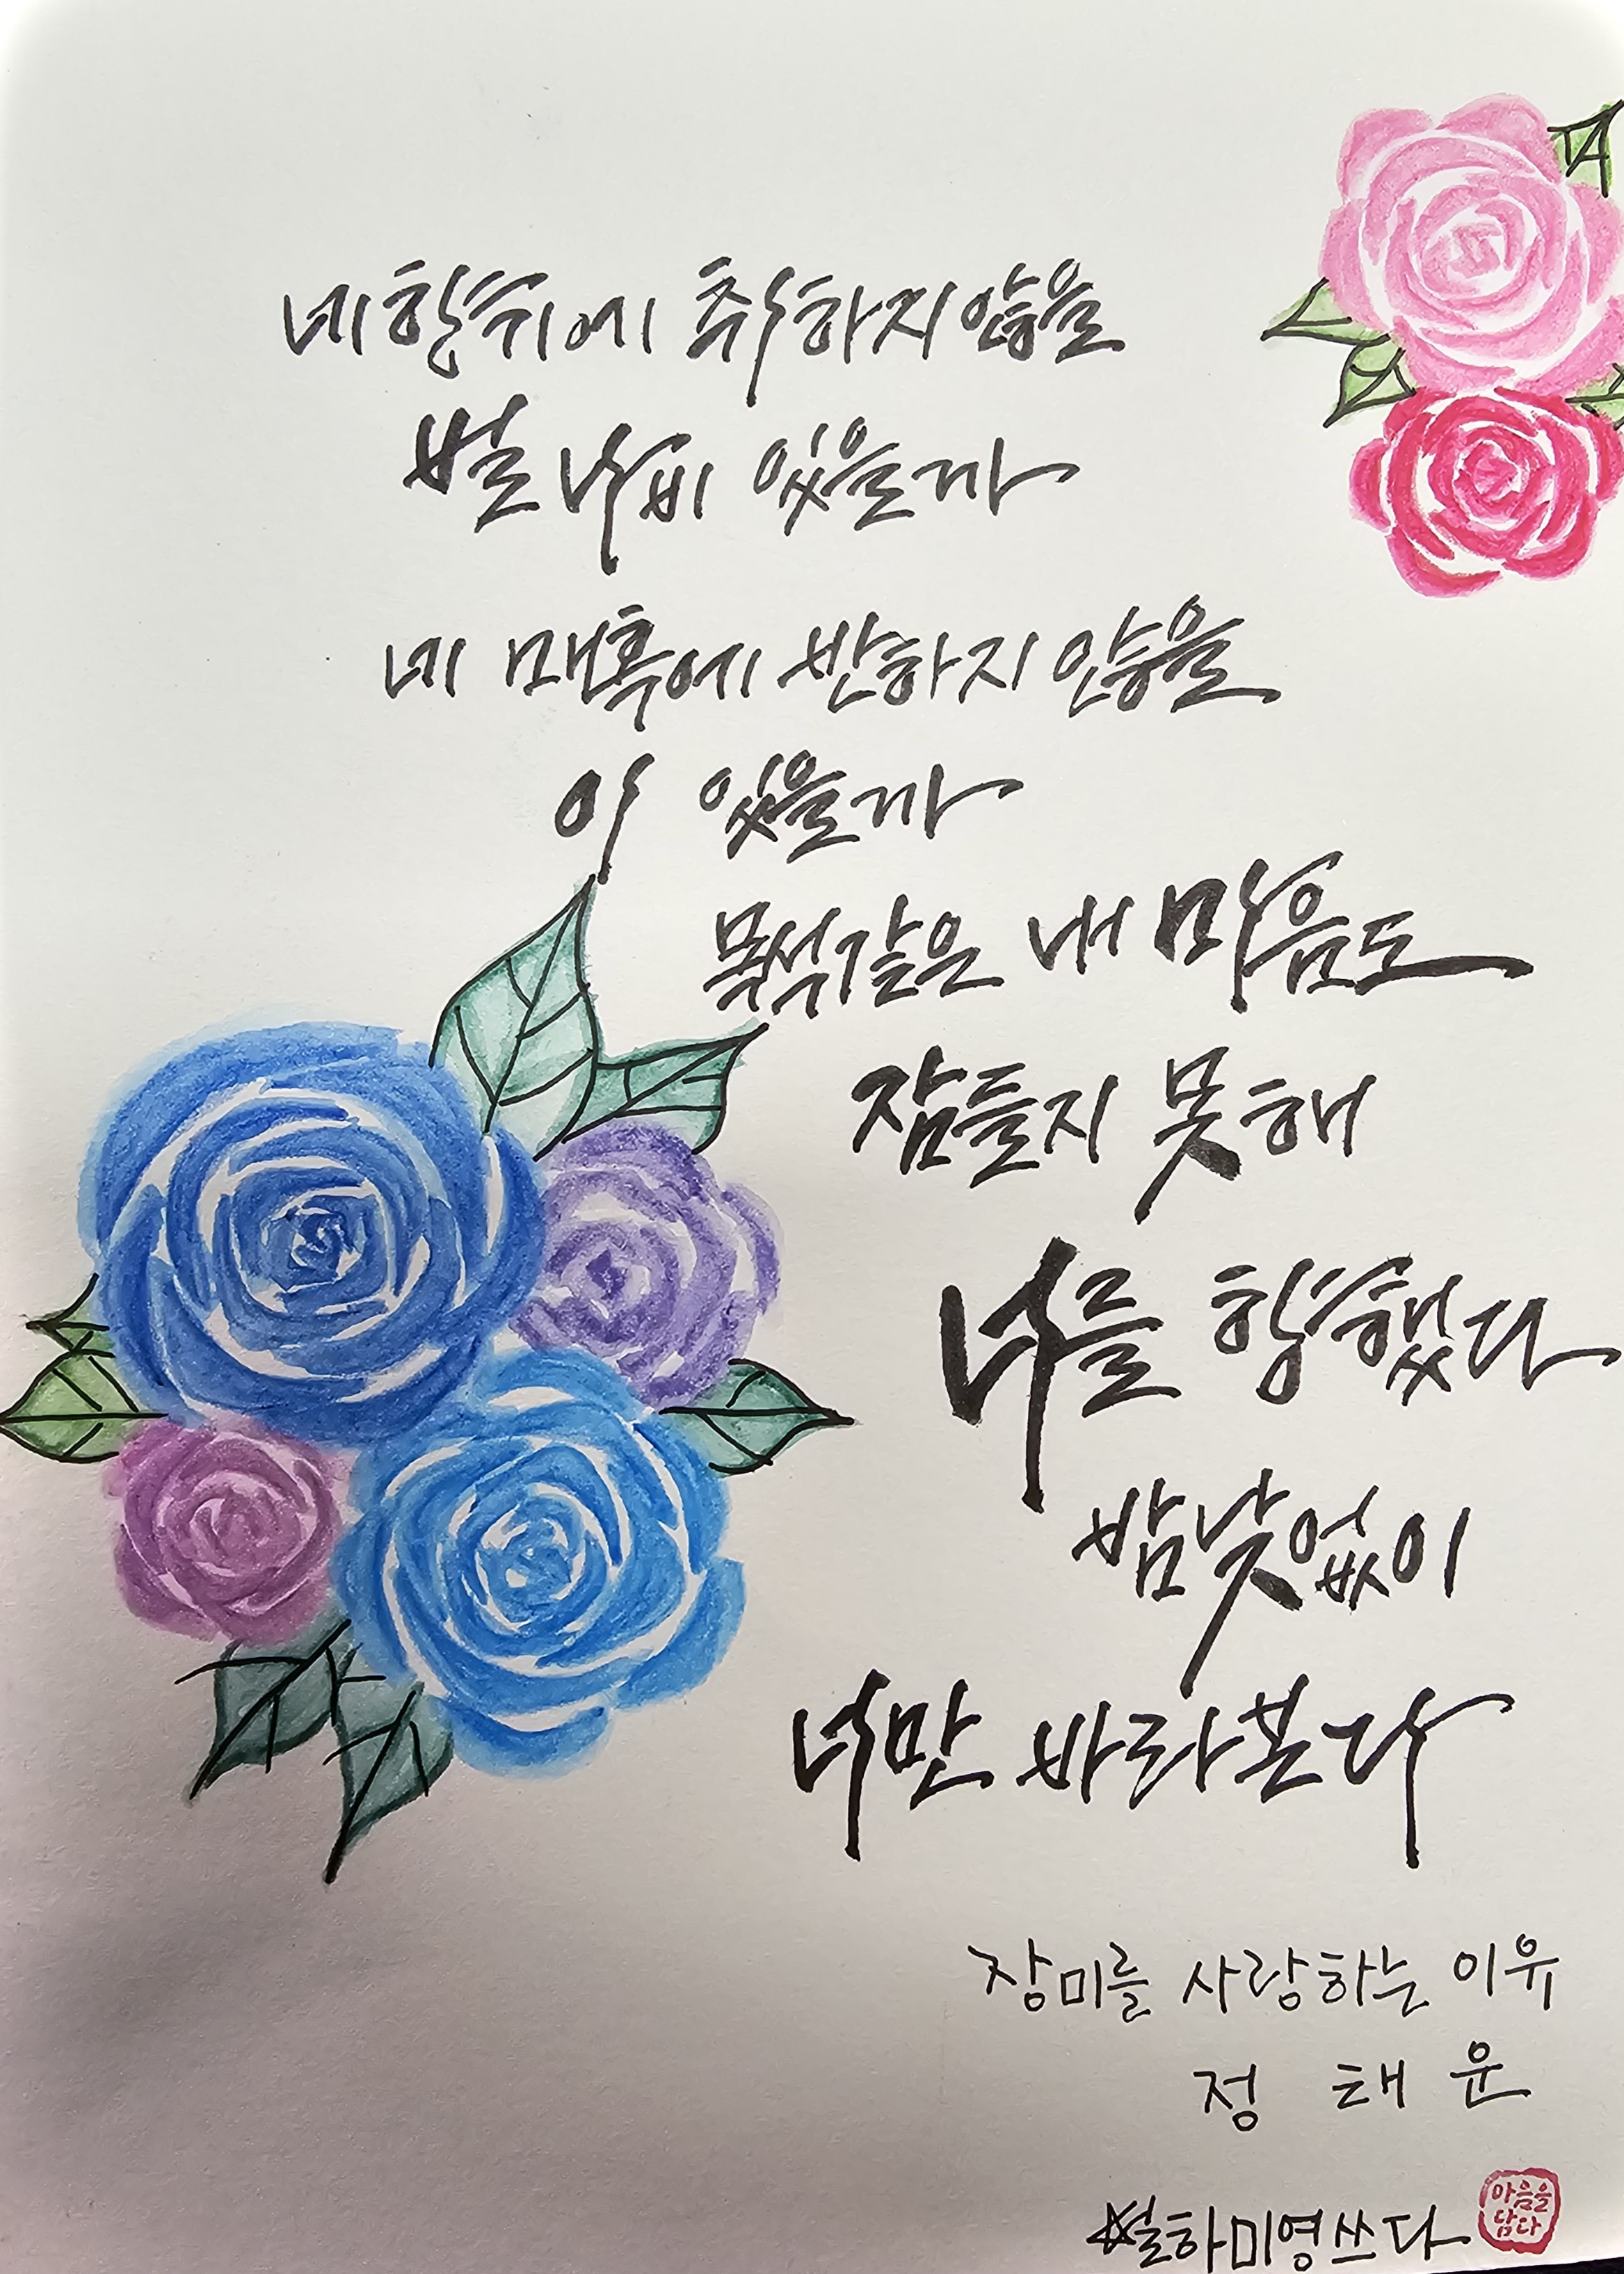 네 향취에 취하지 않을
벌 나비 있을까
네 매혹에 반하지 않을
이 있을까
목석같은 내 마음도
잠들지 못해
너를 향했다
밤낮없이
너만 바라본다
장미를 사랑하는 이유
정 태 운
별하미영쓰다
마음을
담다